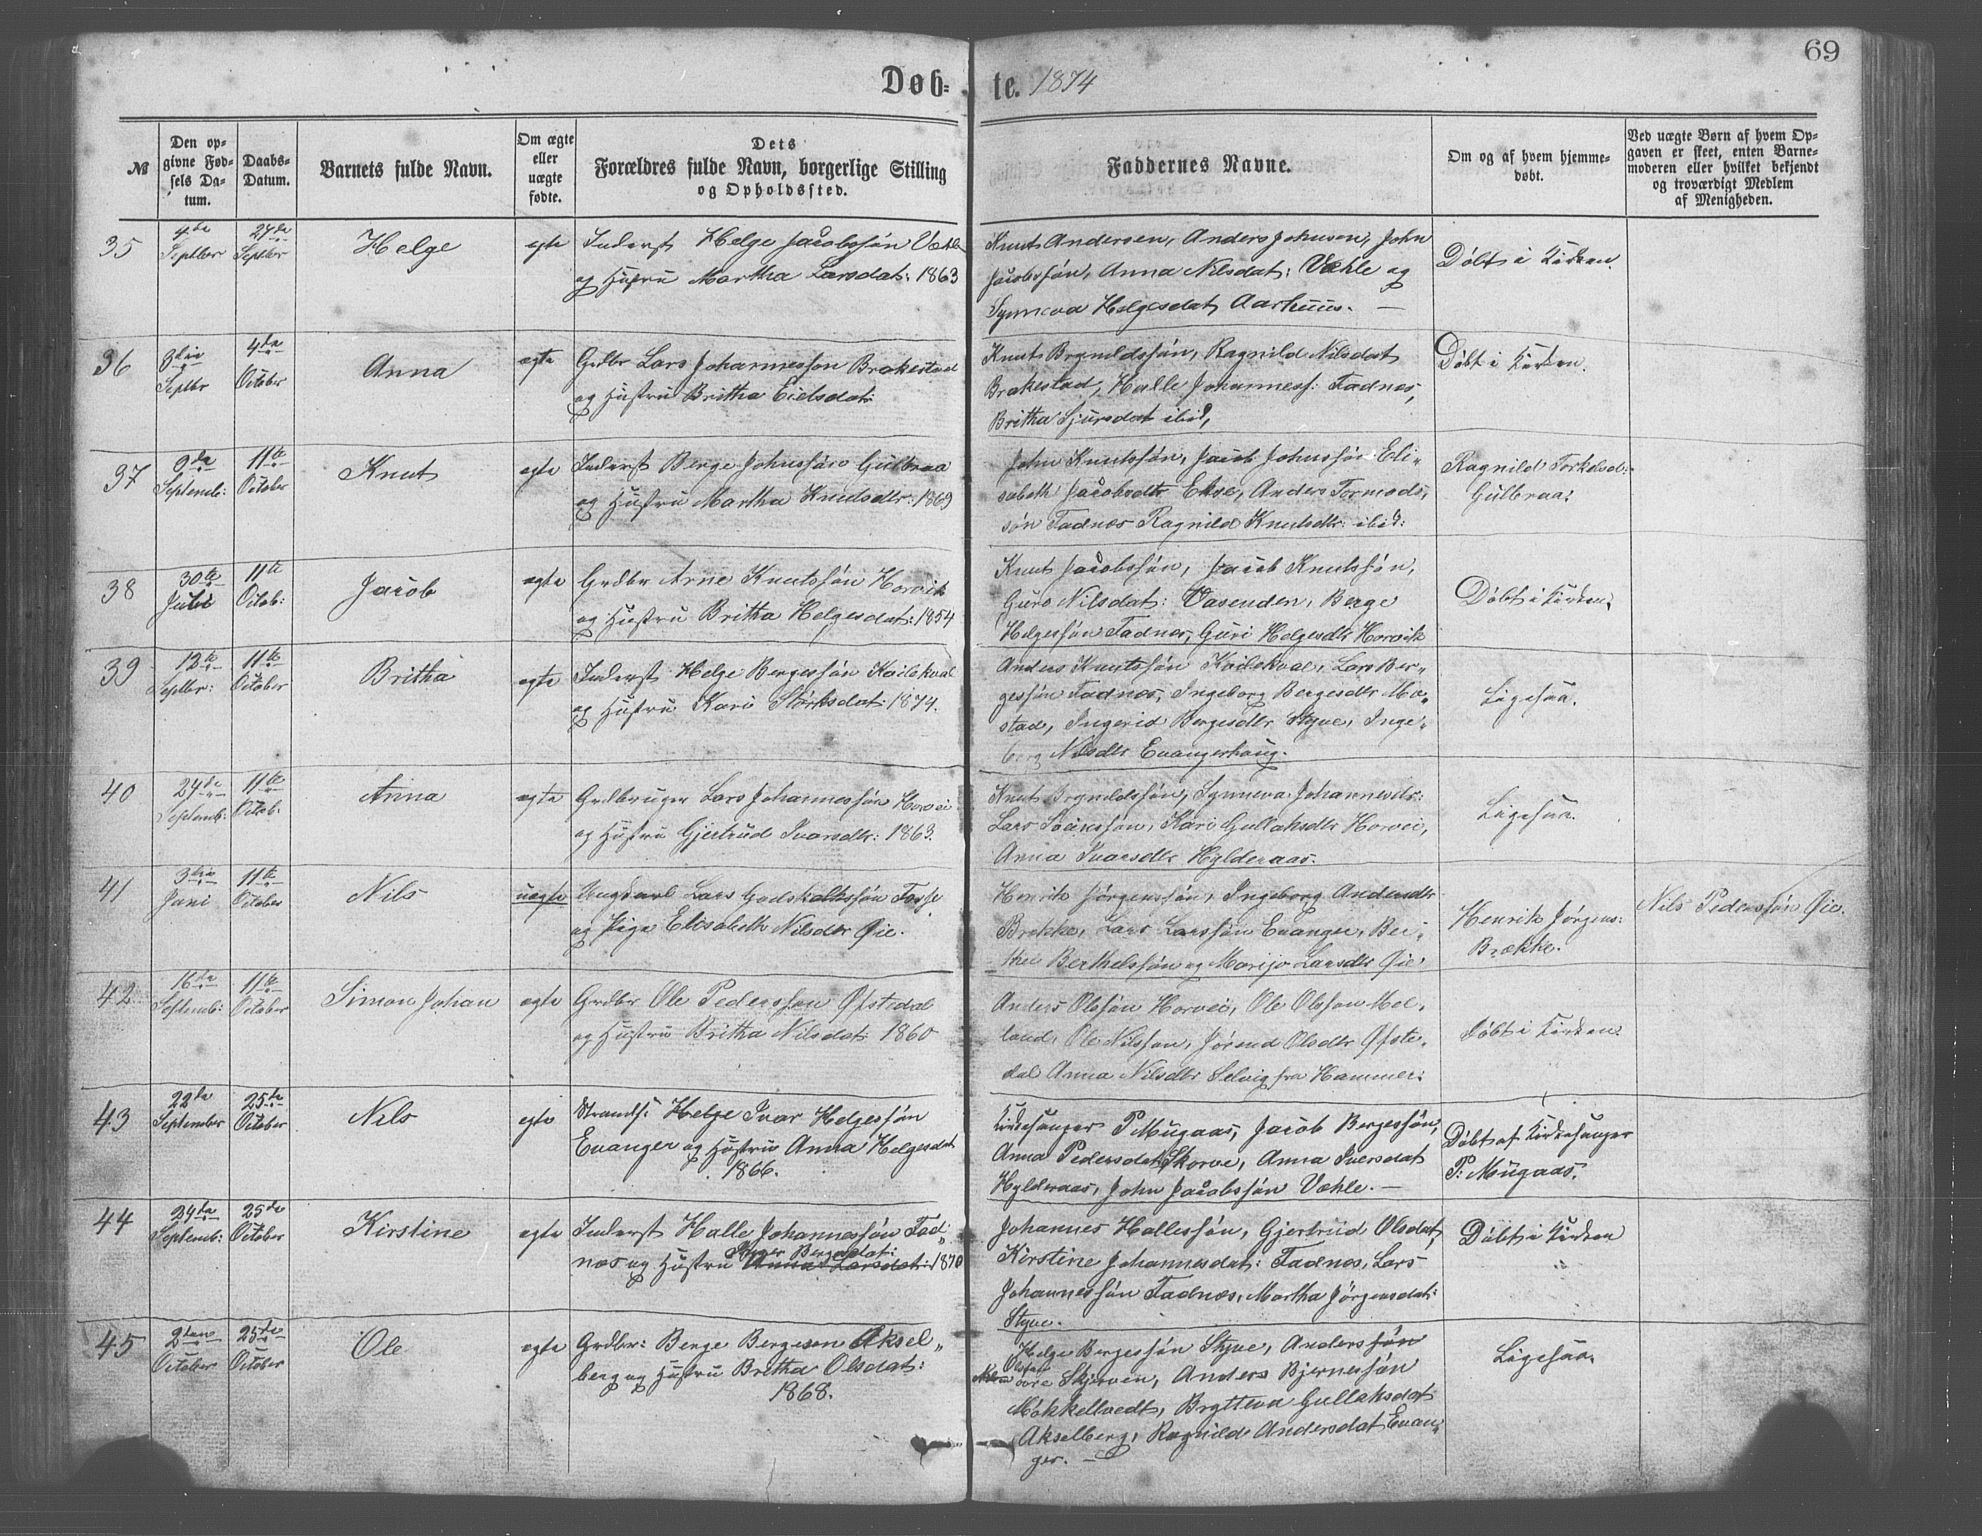 69
Døb= te. 1874
№
Den op-
givne Fød-
sels Da-
tum.
Daabs-
Datum.
Barnets fulde Navn.
Om ægte
eller
uægte
fødte.
Dets
Forældres fulde Navn, borgerlige Stilling
og Opholdssted.
Faddernes Navne.
Om og af hvem hjemme-
døbt.
Ved uægte Børn af hvem Op-
gaven er skeet, enten Barne-
moderen eller hvilket bekjendt
og troværdigt Medlem
af Menigheden.
35
4de
Septbr
27de
Septbr
Helge
egte
Inderst Helge Jacobssøn Væhle
og Hustru Martha Larsdat: 1863
Knut Andersen, Anders Johnsen, John
Jacobssøn, Anna Nilsdat: Væhle og
Synneva Helgesdat Aarhuus. —
Døbt i Kirken.
36
3die
Septbr
4de
October
Anna
egte
Grdbr Lars Johannessøn Brakestad
og Hustru Britha Eielsdat:
Knut Brynildssøn, Ragnild Nilsdat
Brakestad, Halle Johanness: Fadnes,
Britha Sjursdat ibid,
Døbt i Kirken.
37
9de
Septemb:
11te
October
Knut
egte
Inderst Berge Johnssøn Gulbraa
og Hustru Martha Knutsdtr: 1869
John Knutssøn, Jacob Johnssøn Eli-
sabeth Jacobsdtr Ekse, Anders Tormods-
søn Fadnes Ragnild Knutsdtr: ibid:
Ragnild Torkelsd:
Gulbraa:
38
30te
Julii
11te
Octob:
Jacob
egte
Grdbr Arne Knutssøn Horvik
og Hustru Britha Helgesdat: 1854
Knut Jacobssøn, Jacob Knutssøn,
Guro Nilsdat: Vasenden, Berge
Helgessøn Fadnes, Guri Helgesdtr Horvik
Døbt i Kirken.
39
12te
Septbr:
11te
October
Britha
egte
Inderst Helge Bergessøn Kvilekval
og Hustru Kari Størksdat: 1874.
Anders Knutssøn Kvilekval, Lars Ber-
gessøn Fadnes, Ingeborg Bergesdtr Mø-
stad, Ingerid Bergesdtr Styve, Inge-
borg Nilsdtr Evangerhaug.
Ligesaa.
40
24de
Septemb:
11te
Octob:
Anna
egte
Grdbruger Lars Johannessøn Horvei
og Hustru Gjertrud Ivarsdtr: 1863.
Knut Brynildssøn, Synneva Johannesdtr:
Lars Isakssøn, Kari Gullaksdtr Horvei,
Anna Ivarsdtr Hylderaas.
Ligesaa.
41
3die
Juni
11te
October
Nils
uegte
Ungkarl Lars Godskalkssøn Fosse
og Pige Elisabeth Nilsdtr Øie.
Henrik Jørgenssøn, Ingeborg Andersdtr
Brekke, Lars Larssøn Evanger, Ber-
the Berthelssøn og Marijo Larsdtr Øie
Henrik Jørgens:
Brække.
Nils Pederssøn Øie.
42
16de
Septemb:
11te
October
Simon Johan
egte
Grdbr Ole Pederssøn Øfstedal
og Hustru Britha Nilsdat 1860
Anders Olssøn Horvei, Ole Olsson Mel-
land, Ole Nilssøn, Jørend Olsdtr Øfste-
dal Anna Nilsdtr Selvig fra Hammer:
Døbt i Kirken
43
22de
September
25de
October
Nils
egte
Strands: Helge Ivar Helgessøn
Evanger og Hustru Anna Helgesdat
1866.
Kirkesanger P Mugaas, Jacob Bergessøn,
Anna Pedersdat Skorve, Anna Iversdat
Hylderaas, John Jacobssøn Væhle. —
Døbt af Kirkesanger
P: Mugaas.
44
24de
Septemb:
25de
October
Kirstine
egte
Inderst Halle Johannessøn Fad-
Inger Bergesdat:
nes og Hustru Anna Larsdat: 1870
Johannes Hallessøn, Gjertrud Olsdat,
Kirstine Johannesdat: Fadnes, Lars
Johannessøn Fadnes, Martha Jørgensdat:
Styve.
Døbt i Kirken
45
2den
October
25de
October
Ole
egte
Grdbr: Berge Bergesen Aksel-
berg og Hustru Britha Olsdat:
1868.
Helge Bergessøn Styve, Anders søn
Olssøn
øvre Skjerven, Anders Bjernessøn
Møkkeltvedt, Brytteva Gullaksdat
Akselberg, Ragnilde Andersdat Evan-
ger. —
Ligesaa.